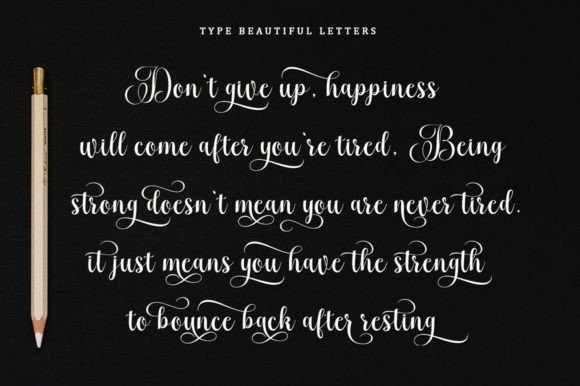 TYPE BEAUTIFUL LETTERS
Don't give up, happiness
will come after you're tired, Being
strong doesn't mean you are never tired.
it just means you have the strength
to bounce back after resting